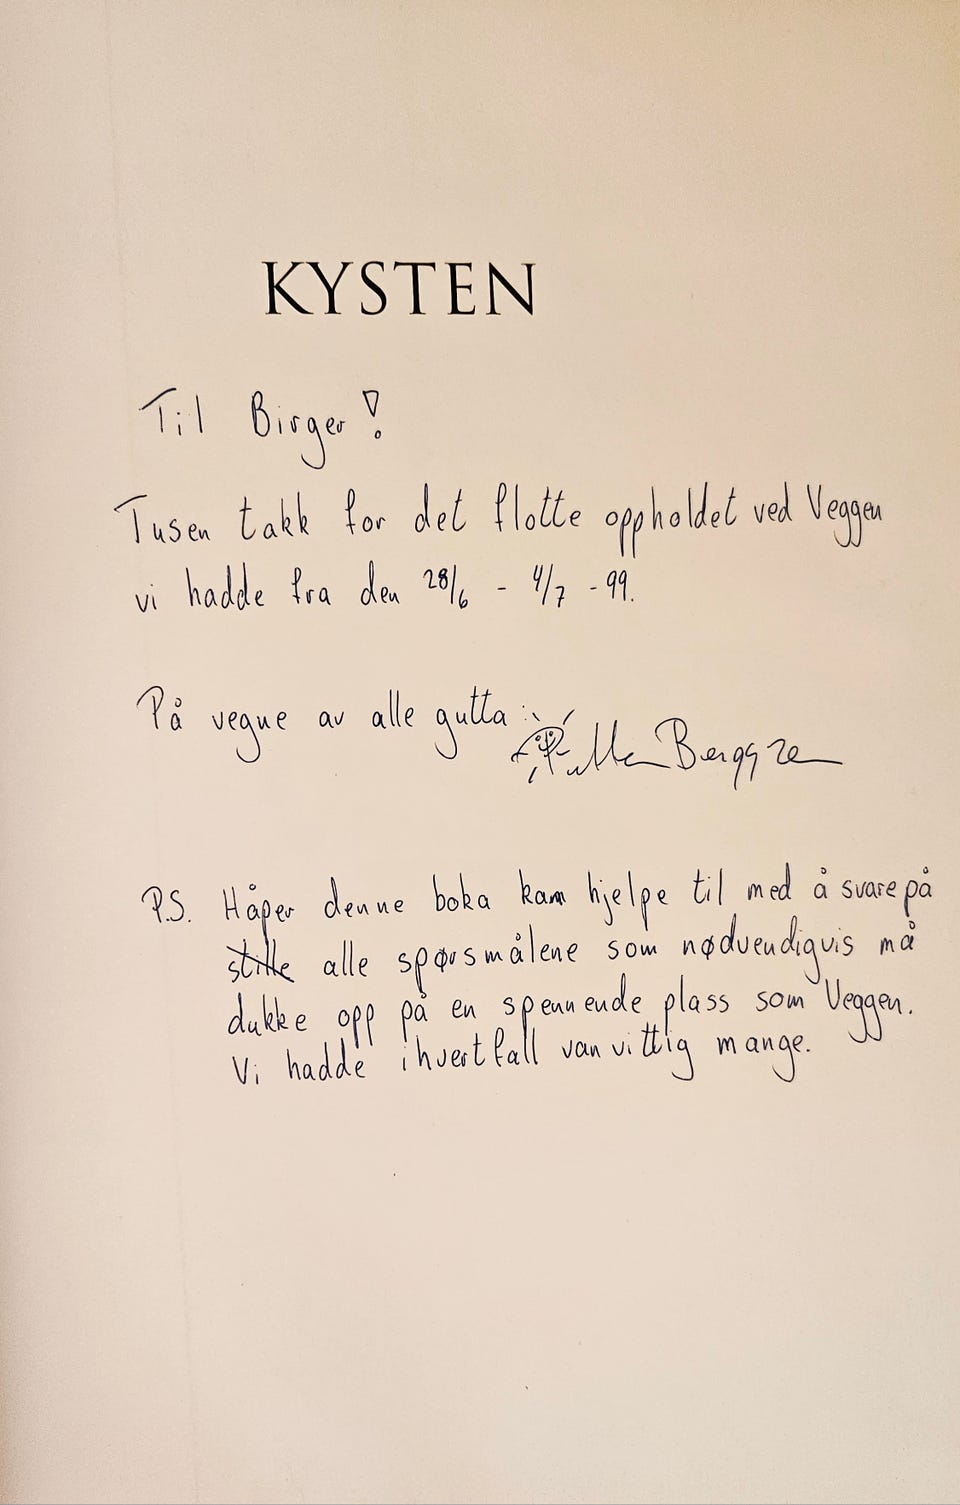 KYSTEN
Til Birger!
Tusen takk for det flotte oppholdet ved Veggen
vi hadde fra den 28/6 - 4/7 - 99.
På vegne av alle gutta
Berggren
P.S. Håper denne boka kan hjelpe til med å svare på
stille alle spørsmålene som nødvendigvis må
dukke opp på en spennende plass som Veggen.
Vi hadde ihvertfall vanvittig mange.